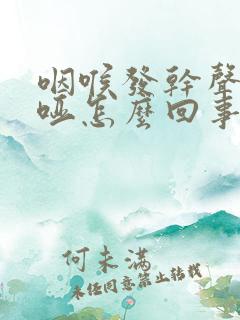 咽喉發幹聲
啞怎麼回事
何未滿
未经同意禁止转载